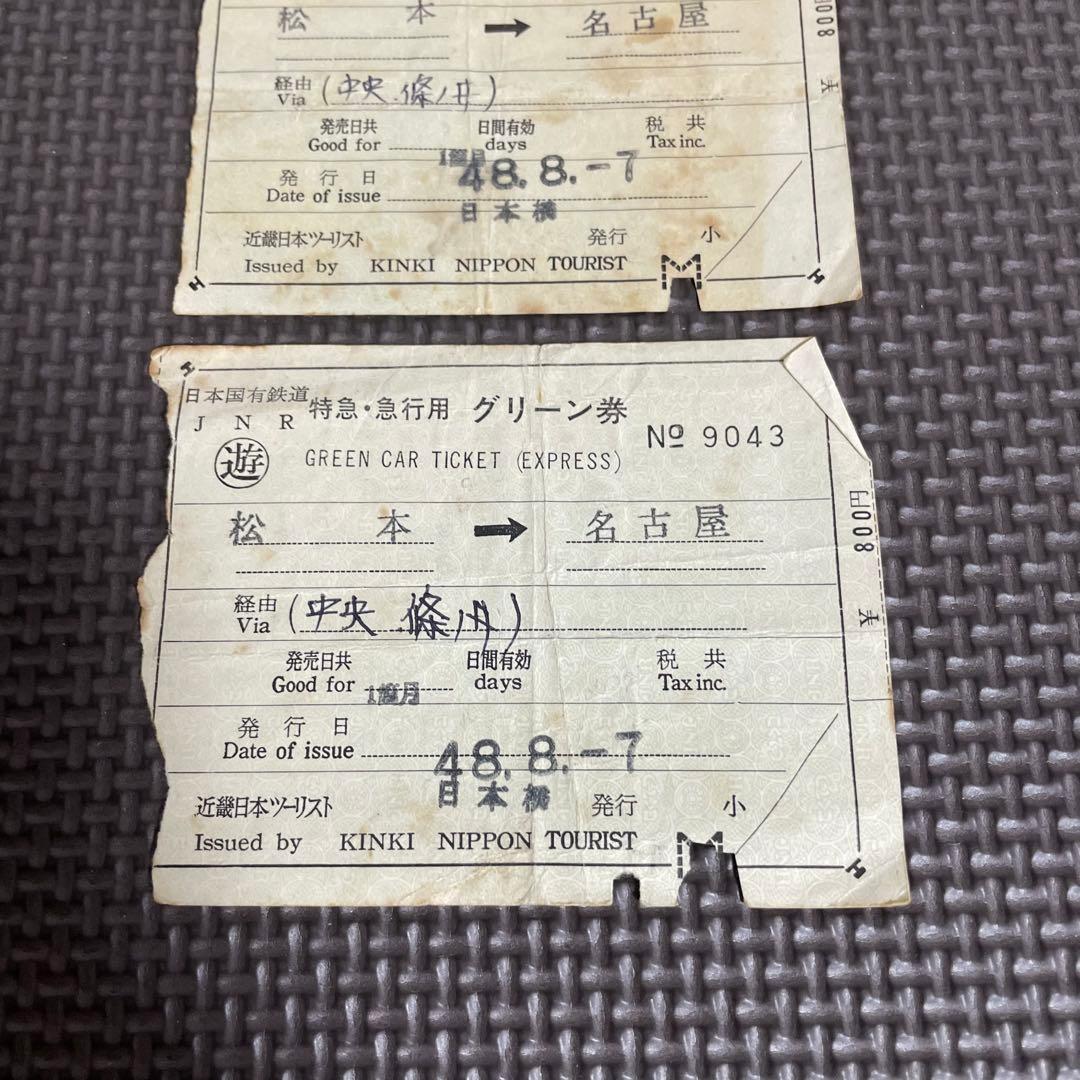 松本 → 名古屋
経由 Via (中央.條ノ井)
発売日共 日間有効 税共
Good for days Tax inc.
1箇月
発行日 48.8.-7
Date of issue
日本橋
近畿日本ツーリスト 発行 小
Issued by KINKI NIPPON TOURIST
円008
大
日本国有鉄道 特急・急行用 グリーン券
J N R
No 9043
遊 GREEN CAR TICKET (EXPRESS)
松本 → 名古屋
経由 Via (中央.條ノ井)
発売日共 日間有効 税共
Good for 1箇月 days Tax inc.
発行日
Date of issue 48.8.-7
日本橋
近畿日本ツーリスト 発行 小
Issued by KINKI NIPPON TOURIST
円008
大